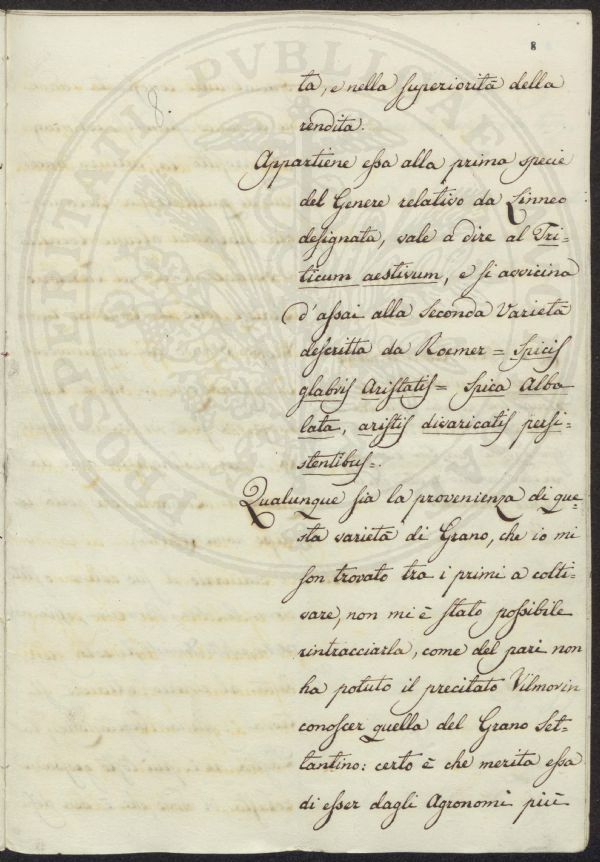 8
8.
ta, e nella superiorità della
rendita.
Appartiene essa alla prima specie
del Genere relativo da Linneo
designata, vale a dire al Tri-
ticum aestivum, e si avvicina
d'assai alla Seconda Varietà
descritta da Roemer = Spicis
glabris Aristatis = Spica Alba
lata, aristis divaricatis persi-
stentibus =.
Qualunque sia la provenienza di que-
sta varietà di Grano, che io mi
son trovato tra i primi a colti-
vare, non mi è stato possibile
rintracciarla, come del pari non
ha potuto il precitato Vilmorin
conoscer quella del Grano Set-
tantino: certo è che merita essa
di esser dagli Agronomi più
PROSPERITATI PVBLICAE